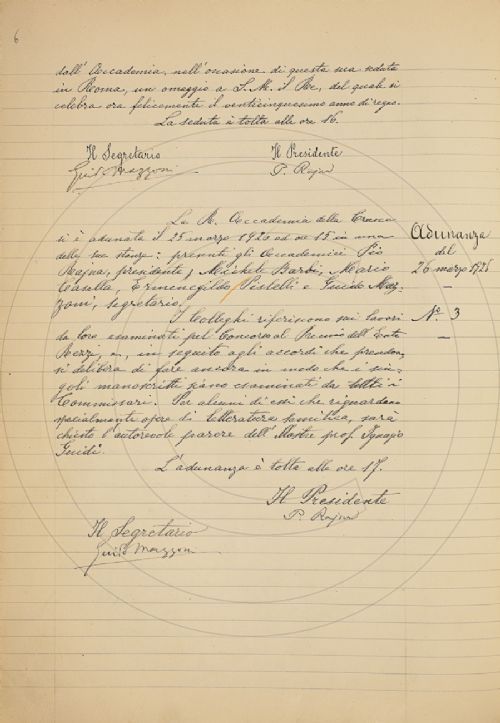 6
dall' Accademia, nell'occasione di questa sua seduta
in Roma, un omaggio a S. M. il Re, del quale si
celebra ora felicemente il venticinquesimo anno di regno.
La seduta è tolta alle ore 16.
Il Segretario Il Presidente
Guido Mazzoni P. Rajna
La R. Accademia della Crusca
si è adunata il 25 marzo 1925 ad ore 15 in una
delle sue stanze: presenti gli Accademici Pio
Rajna, presidente, Michele Barbi, Mario
Casella, Ermenegildo Pistelli e Guido Maz-
zoni, segretario.
Adunanza
del
26 marzo 1925
—
Nº 3
—
I Colleghi riferiscono sui lavori
da loro esaminati pel Concorso al Premio dell' Ente
Rezzi, e, in seguito agli accordi che prendon,
si delibera di fare ancora in modo che i sin-
goli manoscritti siano esaminati da tutti i
Commissari. Per alcuni di essi che riguardano
specialmente opere di letteratura semitica, sarà
chiesto l'autorevole parere dell' prof. Ignazio
Guidi.
L'adunanza è tolta alle ore 17.
Il Presidente
P. Rajna
Il Segretario
Guido Mazzoni